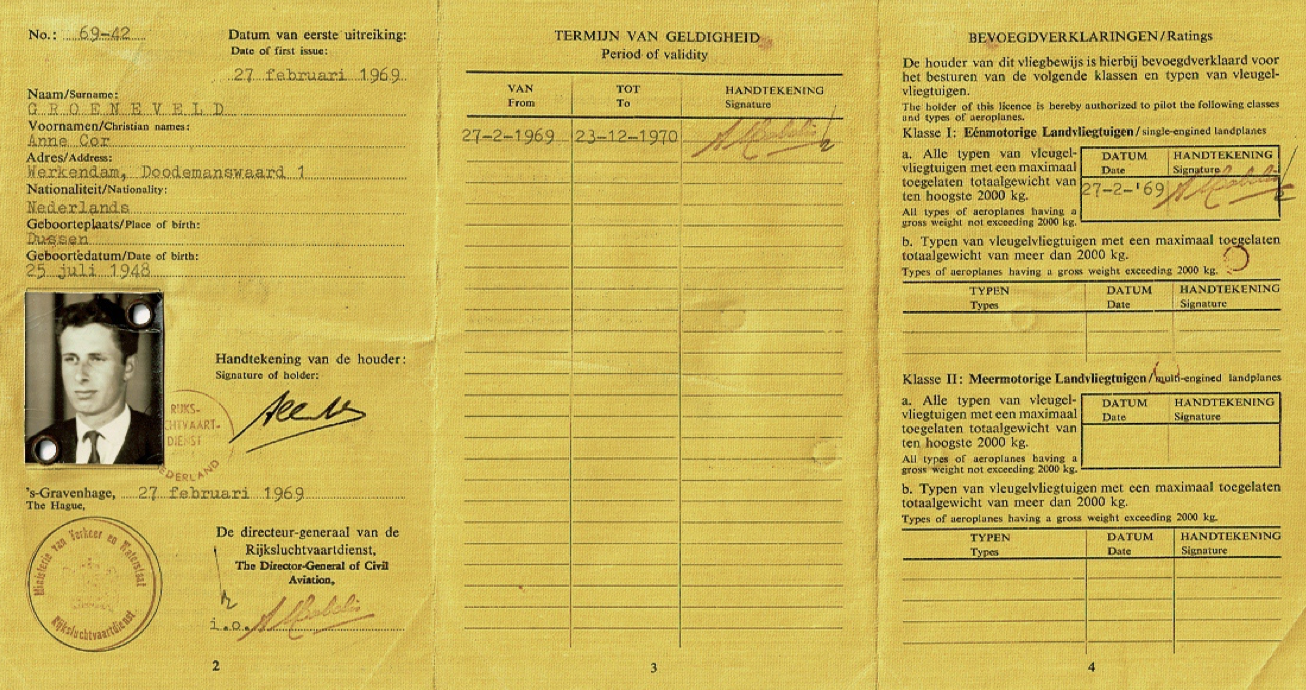 No.: 69-42
Datum van eerste uitreiking:
Date of first issue:
27 februari 1969
Naam/Surname:
GROENEVELD
Voornamen/Christian names:
Anne Cor
Adres/Address:
Werkendam, Doodemanswaard 1
Nationaliteit/Nationality:
Nederlands
Geboorteplaats/Place of birth:
Dussen
Geboortedatum/Date of birth:
25 juli 1948
Handtekening van de houder:
Signature of holder:
RIJKS-
LUCHTVAART-
DIENST
NEDERLAND
's-Gravenhage, 27 februari 1969
The Hague,
Ministerie van Verkeer en Waterstaat
Rijksluchtvaartdienst
De directeur-generaal van de
Rijksluchtvaartdienst,
The Director-General of Civil
Aviation,
i.o.
2
TERMIJN VAN GELDIGHEID
Period of validity
VAN TOT HANDTEKENING
From To Signature
27-2-1969 23-12-1970
3
BEVOEGDVERKLARINGEN/Ratings
De houder van dit vliegbewijs is hierbij bevoegdverklaard voor
het besturen van de volgende klassen en typen van vleugel-
vliegtuigen.
The holder of this licence is hereby authorized to pilot the following classes
and types of aeroplanes.
Klasse I: Eénmotorige Landvliegtuigen/single-engined landplanes
a. Alle typen van vleugel-
vliegtuigen met een maximaal
toegelaten totaalgewicht van
ten hoogste 2000 kg.
All types of aeroplanes having a
gross weight not exceeding 2000 kg.
DATUM HANDTEKENING
Date Signature
27-2-'69
b. Typen van vleugelvliegtuigen met een maximaal toegelaten
totaalgewicht van meer dan 2000 kg.
Types of aeroplanes having a gross weight exceeding 2000 kg.
TYPEN DATUM HANDTEKENING
Types Date Signature
Klasse II: Meermotorige Landvliegtuigen/multi-engined landplanes
a. Alle typen van vleugel-
vliegtuigen met een maximaal
toegelaten totaalgewicht van
ten hoogste 2000 kg.
All types of aeroplanes having a
gross weight not exceeding 2000 kg.
DATUM HANDTEKENING
Date Signature
b. Typen van vleugelvliegtuigen met een maximaal toegelaten
totaalgewicht van meer dan 2000 kg.
Types of aeroplanes having a gross weight exceeding 2000 kg.
TYPEN DATUM HANDTEKENING
Types Date Signature
4